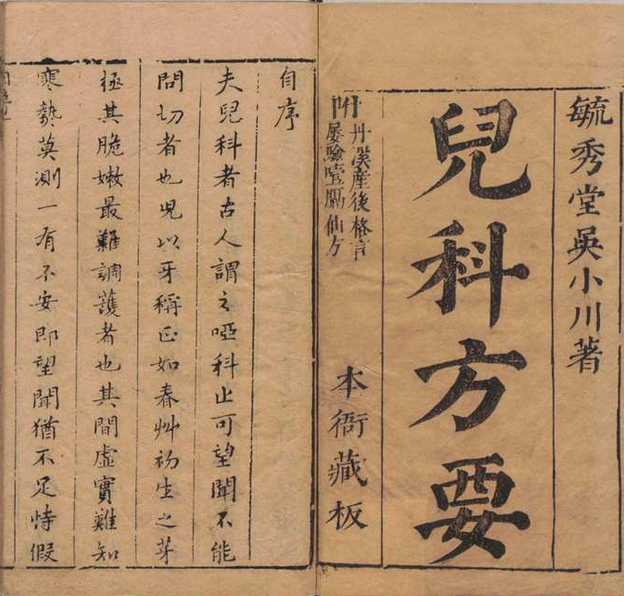 毓秀堂吳小川著
兒科方要
附
丹溪產後格言
屡驗噎膈仙方
本衙藏板
自序
夫兒科者古人謂之啞科止可望聞不能
問切者也兒以牙稱正如春艸初生之芽
極其脆嫩最難調護者也其間虛實難知
寒熱莫測一有不安即望聞猶不足恃假